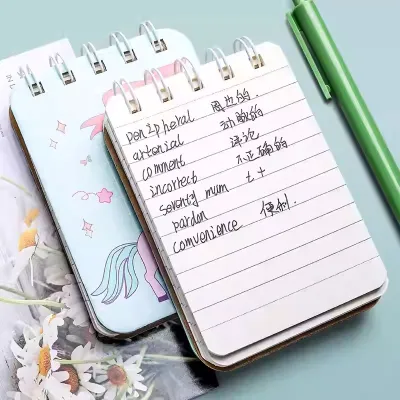 penipheral 周边的.
artenial 动脉的
comment 评论
incorrect 不正确的
seventy mum t +
pardon
comvenience 便利.